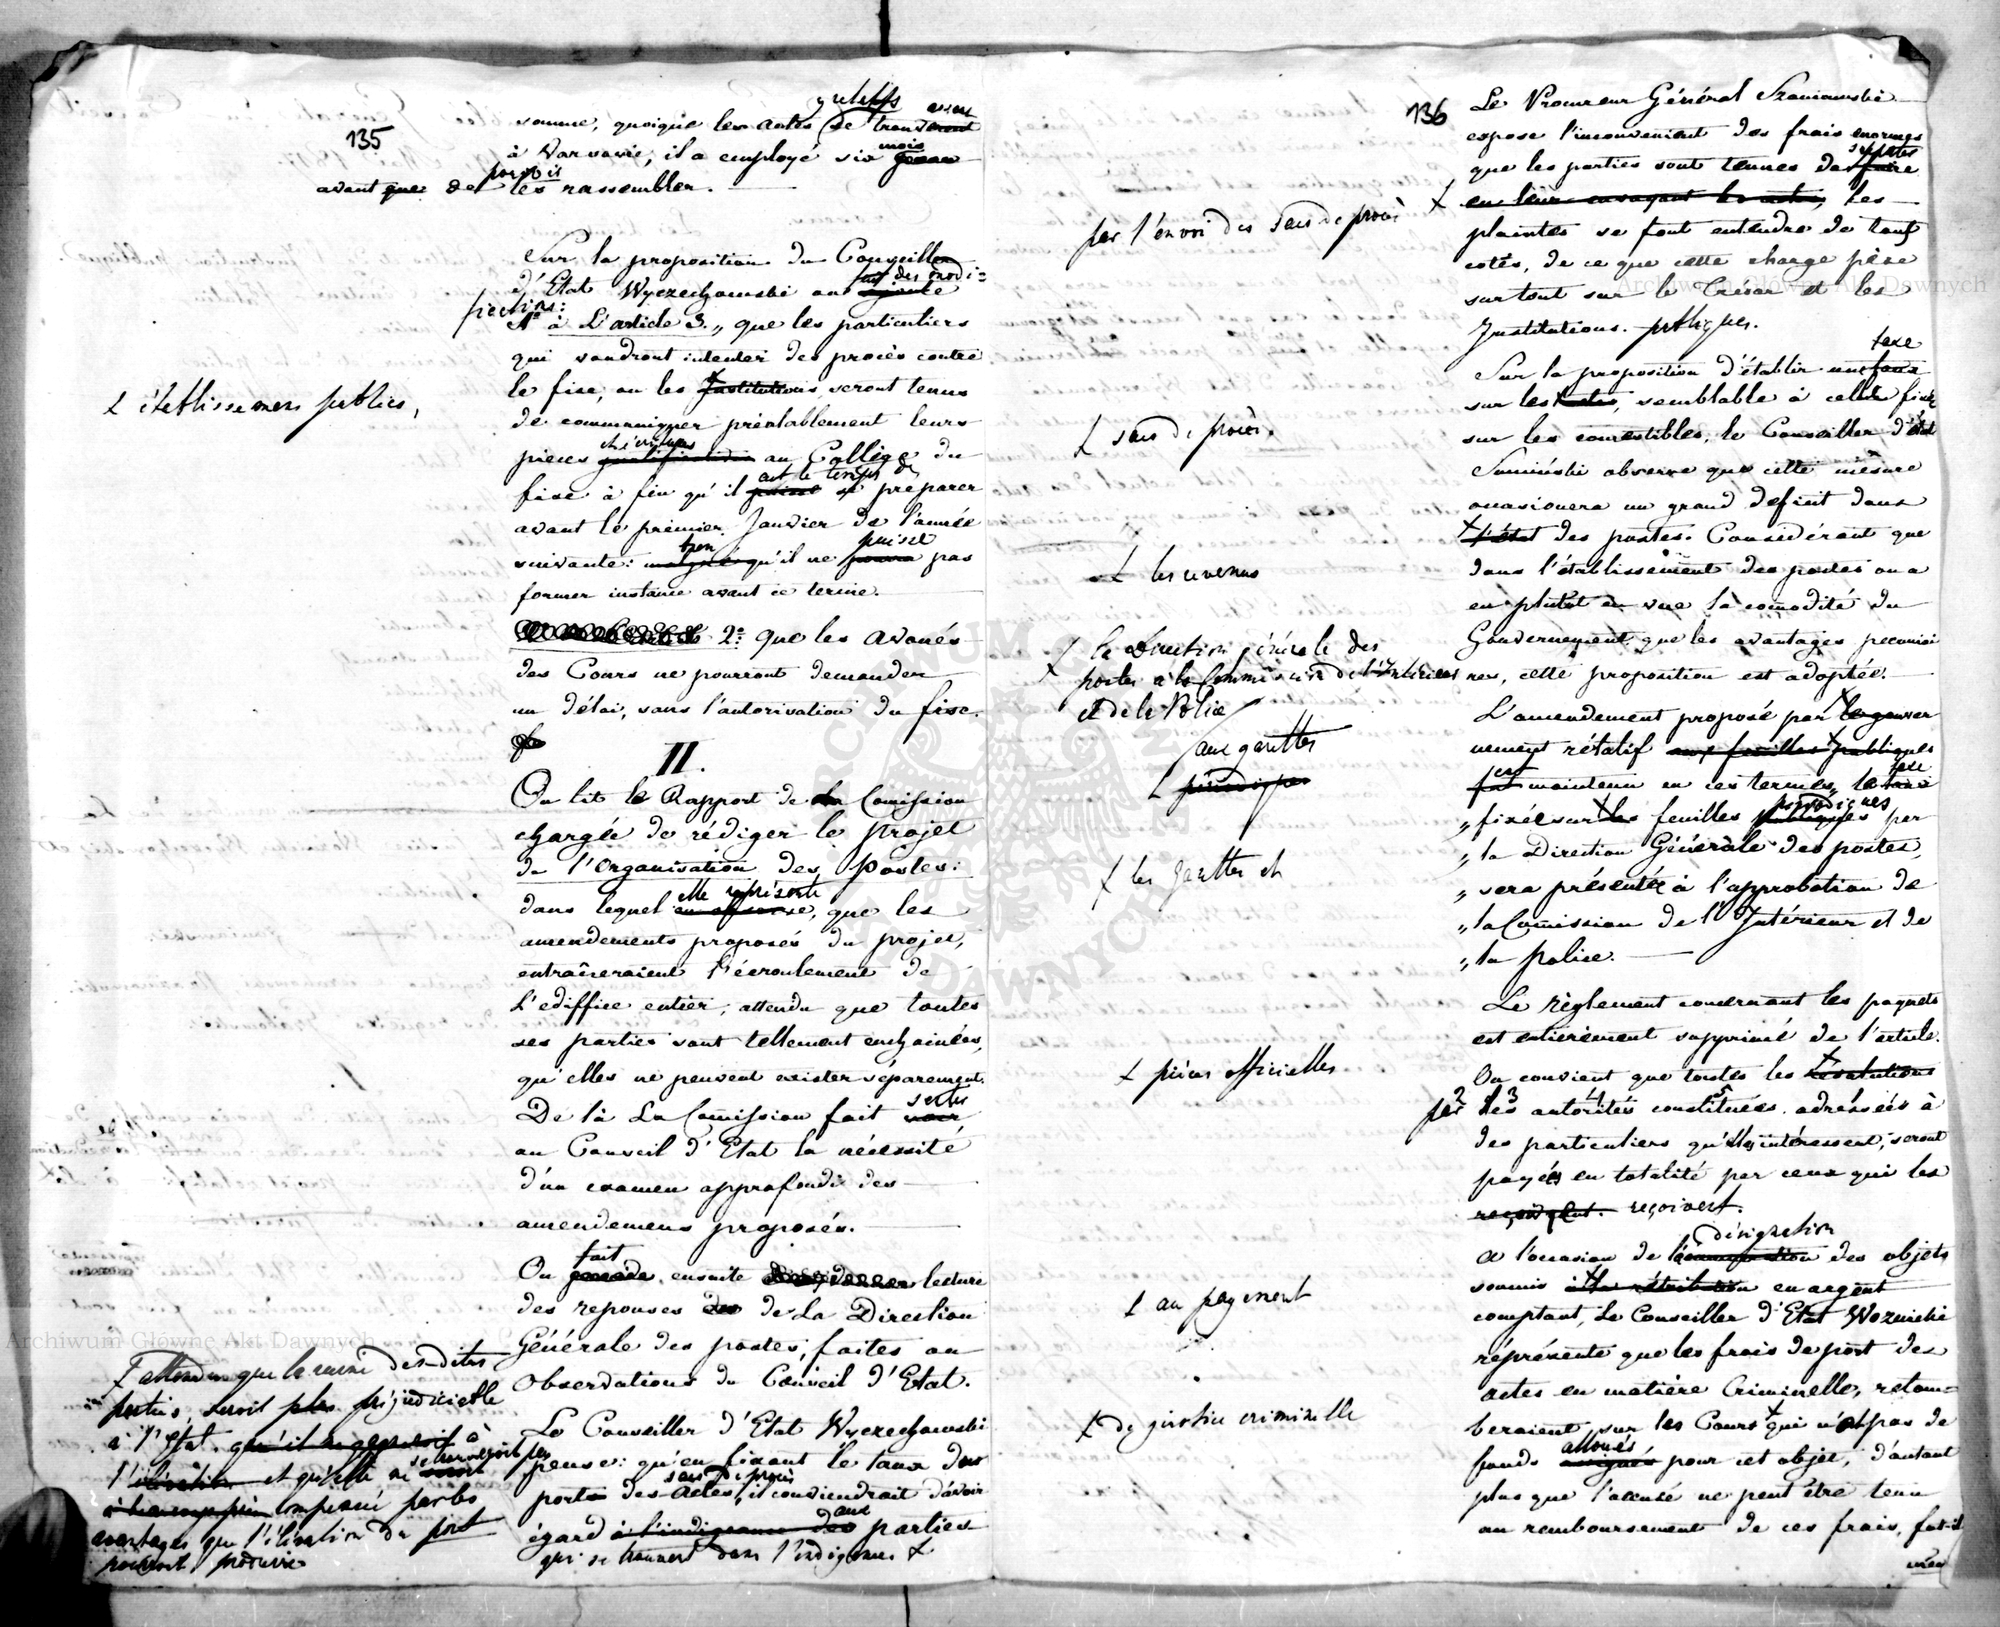 135
somme, quoique les actes se trouvent
à Varsovie, il a employé six mois
avant que de les rassembler.
Sur la proposition du Conseiller
d'Etat Wyczechowski on fait des modi=
fications:
1º à L'article 3. „ que les particuliers
qui voudront intenter des procès contre
le fisc, ou les Institutions, seront tenus
⁁ établissemens publics,
de communiquer préalablement leurs
pieces au Collège du
fisc à fin qu'il ait le temps de se préparer
avant le premier Janvier de l'année
suivante: qu'il ne puisse pas
former instance avant ce terme.
2º: que les avoués
des Cours ne pourront demander
un délai, sans l'autorisation du fisc.
II.
On lit le Rapport de la Comission
chargée de rédiger le projet
de l'Organisation des postes:
dans lequel elle représente, que les
amendements proposés du projet,
entraîneraient l'écroulement de
L'ediffice entier, attendu que toutes
ses parties sont tellement enchainées,
qu'elles ne peuvent exister séparement.
De là La Comission fait sentir
au Conseil d'Etat la nécessité
d'un examen approfondi des
amendemens proposés.
On fait ensuite lecture
des reponses de La Direction
Générale des postes, faites au
Observations du Conseil d'Etat.
Le Conseiller d'Etat Wyczechowski
pense: qu'en fixant le taux des
ports des Actes, il conviendrait d'avoir
sacs de procès
égard à l'indigeance des aux parties
qui se trouvent dans l'indigence
attendu que la ruine desdites
parties, seroit plus préjudiciable
à l'Etat, qu'il
l'élévation et qu'elle ne seroit pas
compensée par les
avantages que l'élévation du port
pourroit produire
136
Le Procureur Général Szaniawski
expose l'inconvenient des frais enormes
que les parties sont tenues de faire
supporter
en leur envoyant les actes, Les
par l'envoi des Sacs de procès
plaintes se font entendre de tous
cotés, de ce que cette charge pèse
surtout sur le Trésor et les
Institutions publiques.
Sur la proposition d'établir une taxe
sur les actes, semblable à celle fixée
⁁ sacs de procès.
sur les comestibles, le Conseiller d'état
Sumiński observe que cette mésure
occasionera un grand deficit dans
l'état des postes. Considérant que
⁁ les revenus
dans l'établissement des postes on a
eu plutôt en vue la comodité du
Gouvernement que les avantages pecuniai
res, cette proposition est adoptée.
⁁ la Direction générale des
postes à la Commission de l'Intérieur
et de la Police
L'amendement proposé par le gouver
nement rélatif aux feuilles publiques
aux gazettes
périodiques
est maintenu en ces termes, „ la taxe
„ fixée sur les feuilles périodiques par
⁁ les gazettes et
„ la Direction Générale des postes,
„ sera présentée à l'approbation de
„ la Comission de l'Intérieur et de
„ la police.
Le règlement concernant les paquets
est entièrement supprimé de l'article.
On convient que toutes les
⁁ pièces officielles
par les autorités constituées adréssées à
des particuliers qu'elles intéressent, seront
payés en totalité par ceux qui les
reçoivent.
A l'occasion de la désignation des objets
soumis en argent
⁁ au payement
comptant, Le Conseiller d'Etat Woznicki
répréxente que les frais de port des
actes en matière Criminelle, retom=
beraient sur les Cours qui n'ont pas de
⁁ de justice criminelle
fonds alloués pour cet objet, d'autant
plus que l'accusé ne peut être tenu
au remboursement de ces frais, fut-il
Archiwum Główne Akt Dawnych
Archiwum Główne Akt Dawnych
ARCHIWUM
DAWNYCH